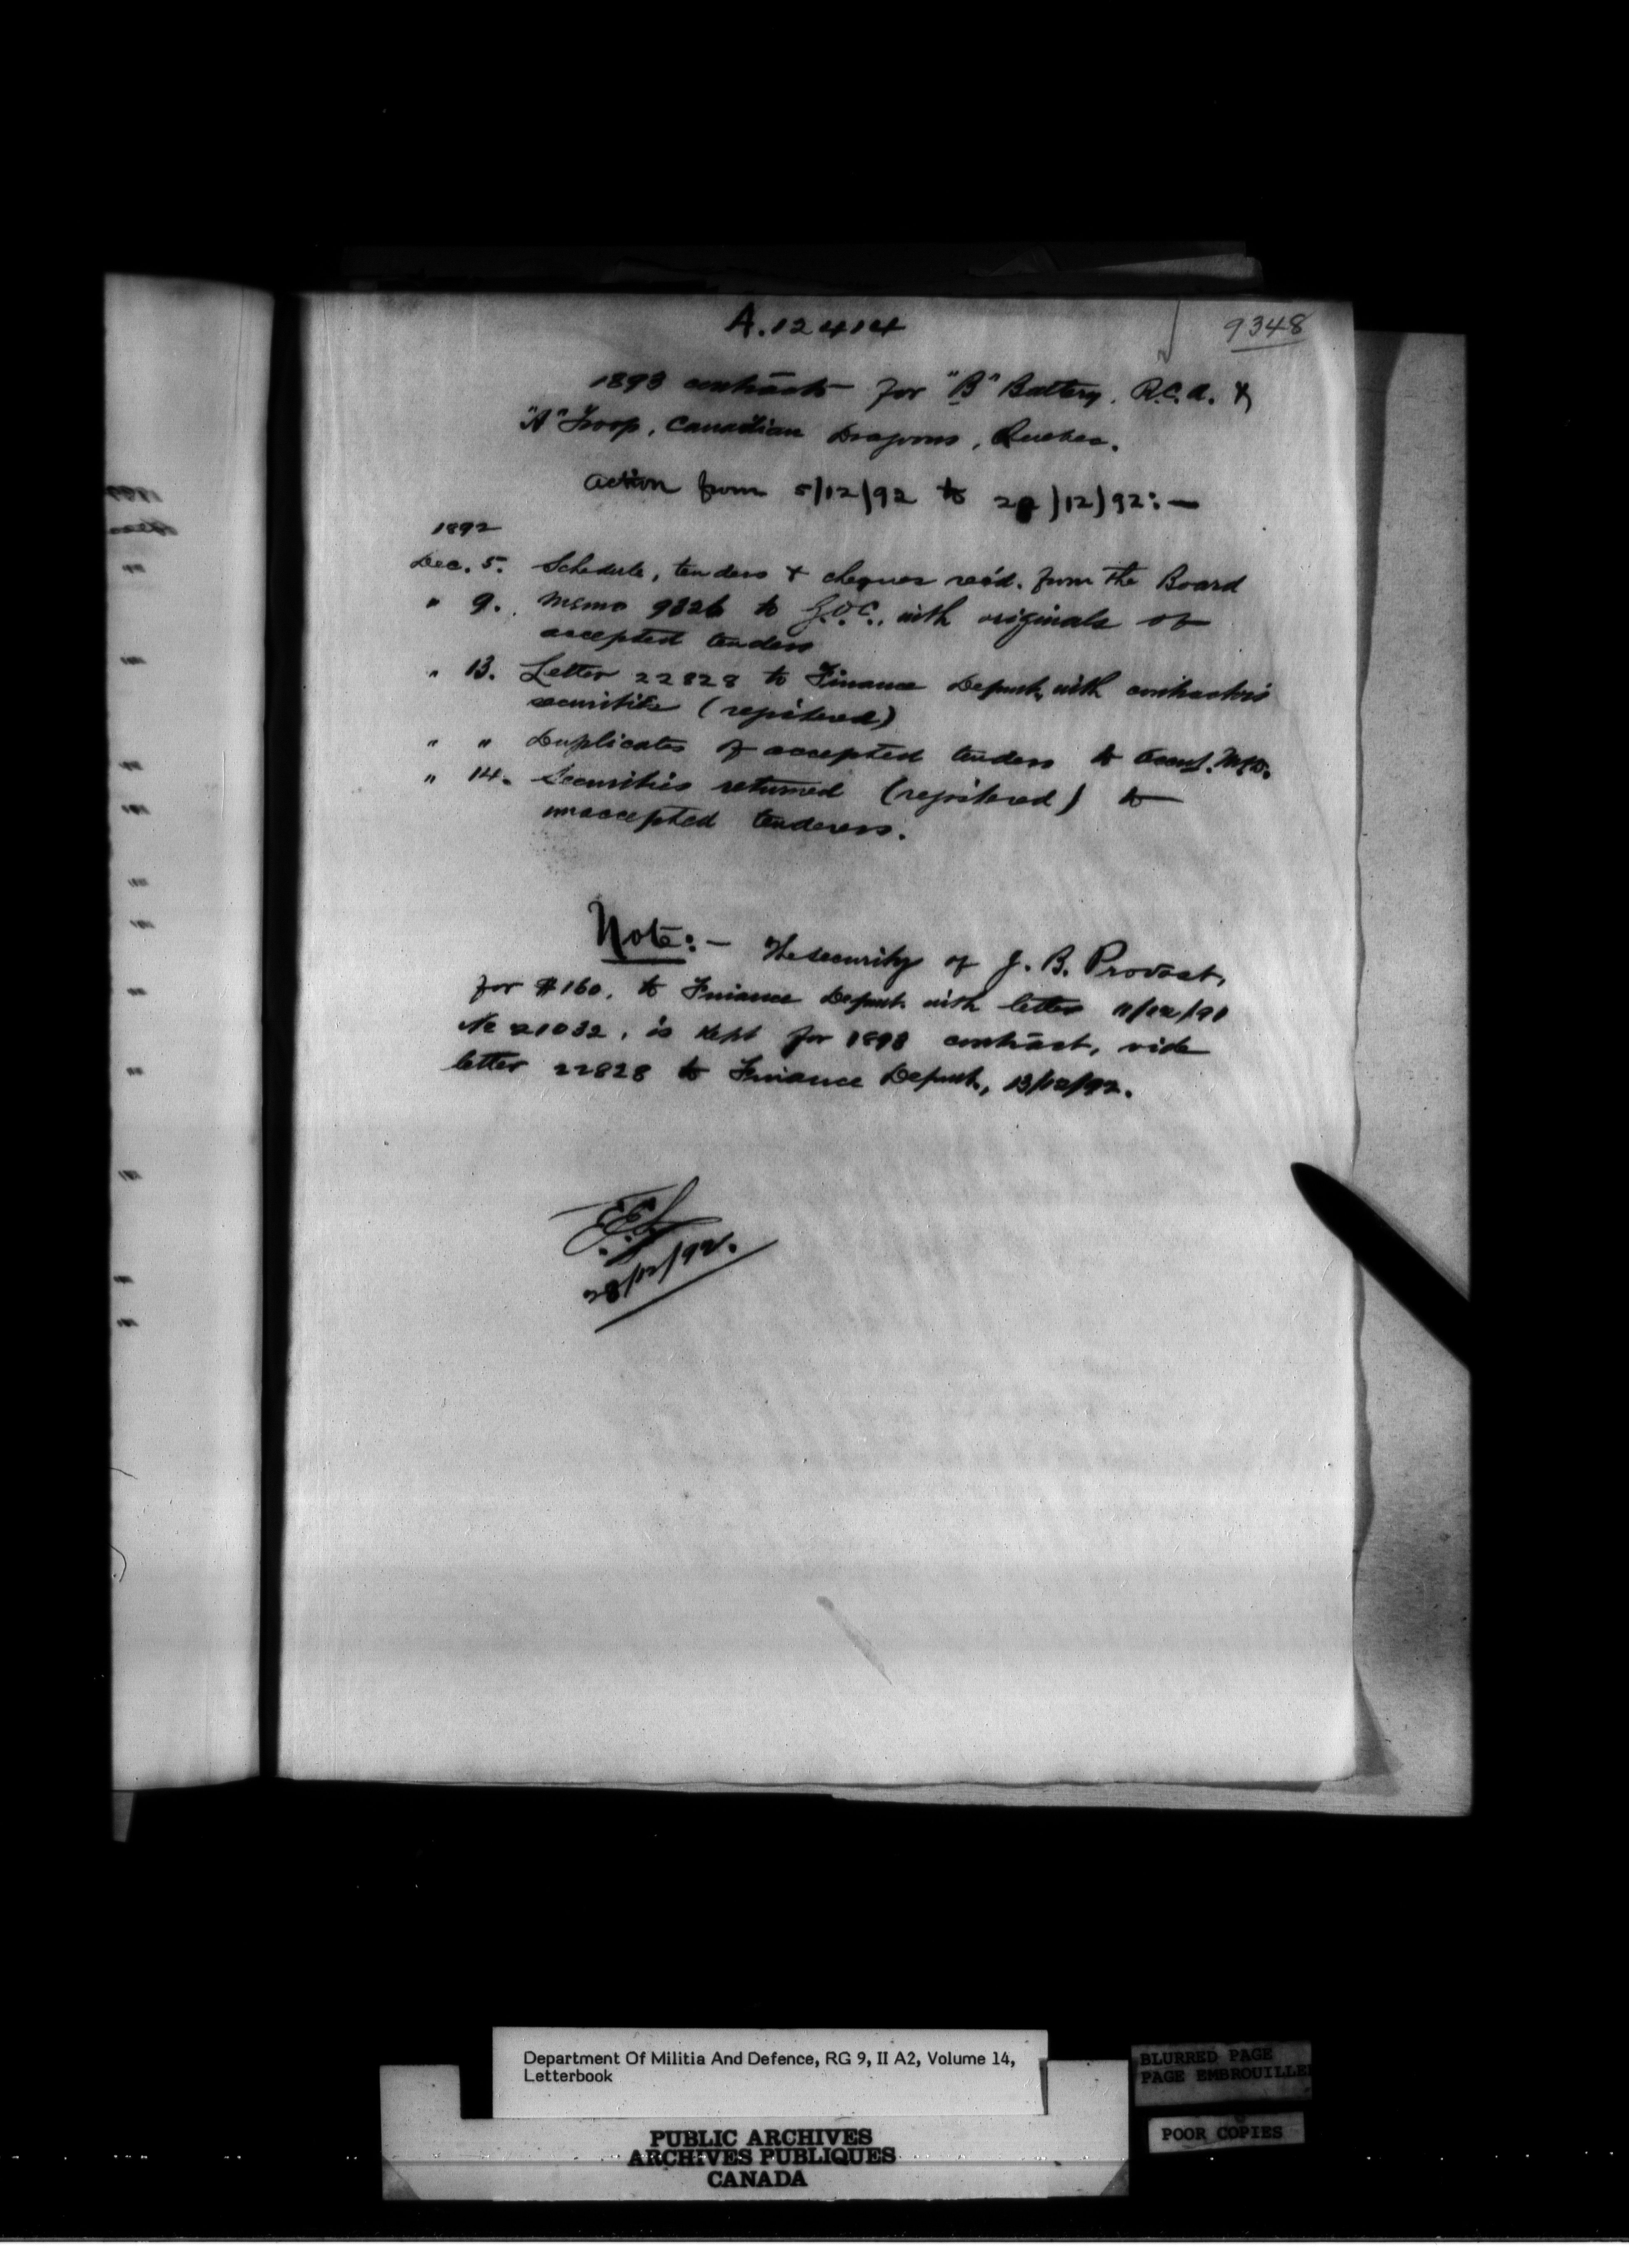 A.12414
9348
1893 contracts for "B" Battery, R.C.A. &
"A" Troop, Canadian Dragoons, Quebec.
Action from 5/12/92 to 28/12/92:—
1892
Dec. 5. Schedule, tenders & cheques rec'd. from the Board
" 9. Memo 9326 to G.O.C., with originals of
accepted tenders
" 13. Letter 22828 to Finance Depmt, with contractors
securities (registered)
" " Duplicates of accepted tenders to Acct. M&D.
" 14. Securities returned (registered) to
unaccepted tenderers.
Note:— The security of J. B. Provost,
for $160, to Finance Depmt. with letter 11/12/91
No 21032, is kept for 1893 contract, vide
letter 22828 to Finance Depmt, 13/12/92.
28/12/92.
Department Of Militia And Defence, RG 9, II A2, Volume 14,
Letterbook
PUBLIC ARCHIVES
ARCHIVES PUBLIQUES
CANADA
BLURRED PAGE
PAGE EMBROUILLE
POOR COPIES